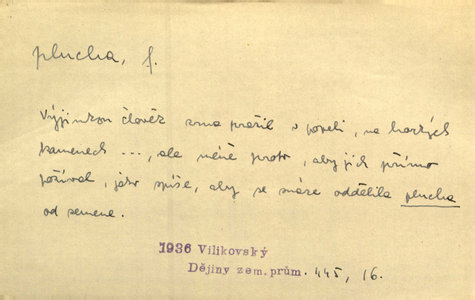 plucha, f.
Výjimkou člověk zrna pražil v popeli, na horkých
kamenech ..., ale méně proto, aby jich přímo
požíval, jako spíše, aby se snáze oddělila plucha
od semene.
1936 Vilikovský
Dějiny zem. prům. 445, 16.